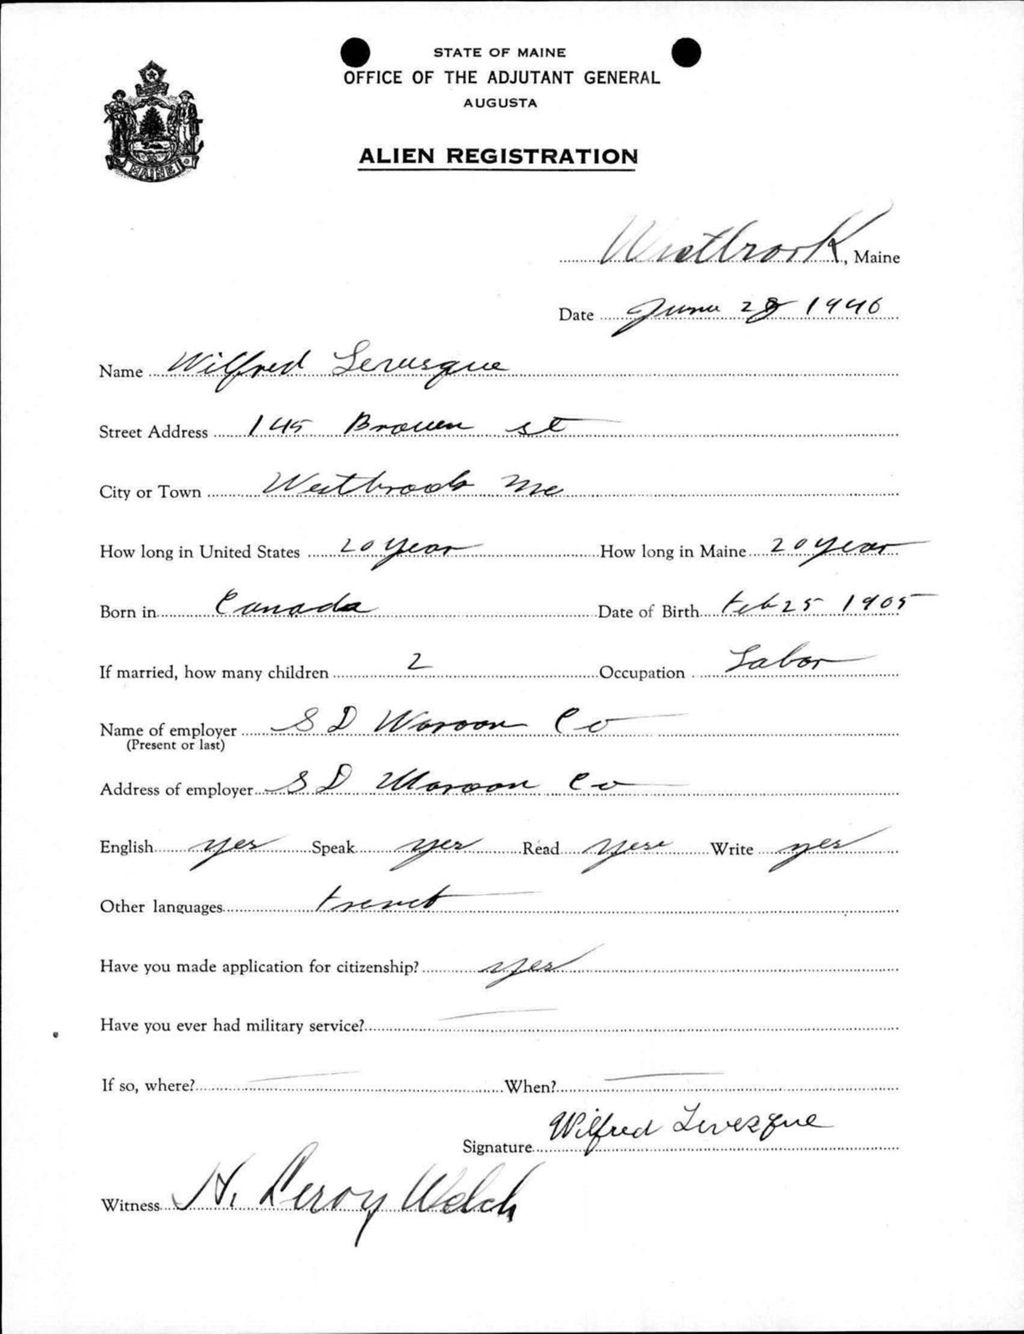 STATE OF MAINE
OFFICE OF THE ADJUTANT GENERAL
AUGUSTA
ALIEN REGISTRATION
MAINE
Westbrook, Maine
Date June 28 1940
Name Wilfred Levesque
Street Address 145 Brown st
City or Town Westbrook Me
How long in United States 20 year How long in Maine 20 year
Born in Canada Date of Birth Feb 25 1905
If married, how many children 2 Occupation Labor
Name of employer S D Waroon Co
(Present or last)
Address of employer S D Waroon Co
English yes Speak yes Read yes Write yes
Other languages french
Have you made application for citizenship? yes
Have you ever had military service? —
If so, where? — When? —
Signature Wilfred Levesque
Witness H. Leroy Welch